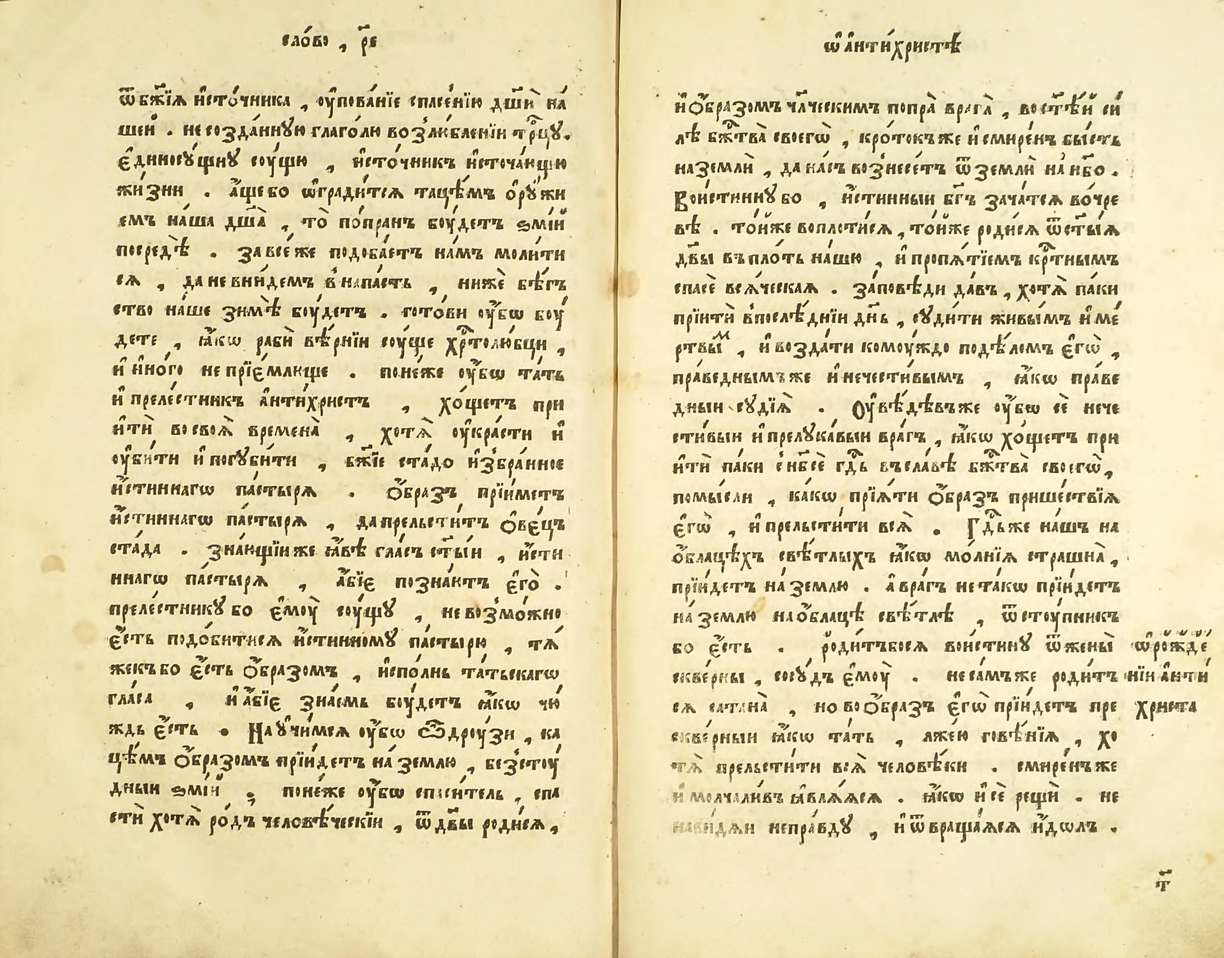 сло́во , р҃е
ѿ бж҃їѧ и҆сто́чника , ѹ҆пова́нїе сп҃сенїю дш҃и на́
шеи . несозда́ннꙋю глаго́ли возлю́бленїи тр҃цꙋ.
є҆диносꙋ́щнꙋ сꙋ́щꙋ , и҆сто́чникъ и҆сточа́ющїю
жи́зни . а҆́щебо ѡ҆гради́тсѧ таце́мъ ѻ҆рꙋ́жи
емъ на́ша дш҃а̀ , то̀ по́пранъ бꙋ́детъ ѕмі́й
посредѣ̀ . завсе́ же подоба́етъ на́мъ моли́ти
сѧ , да не вни́демъ в̾напа́сть , нижѐ бѣ́гъ
ство на́ше зимѣ̀ бꙋ́детъ . гото́ви ѹ҆́бѡ бꙋ́
дете , ꙗ҆́кѡ рабѝ вѣ́рнїи сꙋ́ще хр҃толю́бцы ,
и҆ и҆но́го не прїе́млюще . поне́же ѹ҆́бѡ та́ть
и҆ преле́стникъ а҆нти́христъ , хо́щетъ при
и҆тѝ во своѧ̀ времена̀ , хотѧ̀ ѹ҆кра́сти и҆
ѹ҆би́ти и҆ погꙋби́ти , бж҃їе ста́до и҆збра́нное
и҆́стиннагѡ па́стырѧ . ѻ҆́браз̾ прїи́метъ
и҆́стиннагѡ па́стырѧ , да прельсти́тъ ѻ҆ве́цъ
ста́да . зна́ющїи же ꙗ҆́вѣ гла́съ ст҃ы́и , и҆́сти
ннагѡ па́стырѧ , а҆́бїе позна́ютъ є҆го̀ .
преле́стникꙋ бо є҆мꙋ̀ сꙋ́щꙋ , не возмо́жно
є҆́сть подо́битисѧ и҆́стинномꙋ па́стырю , тѧ́
жекъ бо є҆́сть ѻ҆́бразомъ , и҆спо́лнь та́тьскагѡ
гла́са , и҆ а҆́бїе зна́емь бꙋ́детъ ꙗ҆́кѡ чю́
ждь є҆́сть . Наꙋчи́мсѧ ѹ҆́бѡ ѽ дрꙋ́зи , ка
це́мъ ѻ҆́бразомъ прїи́детъ на́ землю , безстꙋ́
дныи ѕмі́й ; поне́же ѹ҆́бѡ сп҃си́тель , спа
сти́ хотѧ̀ ро́дъ человѣ́ческїи , ѿ дв҃ы роди́сѧ ,
ѡ҆ а҆нти́христѣ
и҆ ѻ҆́бразомъ чл҃ческимъ попра̀ врага̀ , во ст҃ѣ́й си́
лѣ бж҃тва̀ своегѡ̀ , кро́токъ же и҆ смире́нъ бы́сть
на землѝ , да на́съ вознесе́тъ ѿ землѝ на́ нб҃о .
Вои́стиннꙋ бо , и҆́стинныи бг҃ъ зача́тсѧ во́ чре
вѣ . то́йже воплоти́сѧ , то́йже роди́сѧ ѿ ст҃ы́ѧ
дв҃ы в̾пло́ть на́шю , и҆ пропѧ́тїемъ кр҃тнымъ
спасѐ всѧ́ческаѧ . за́повѣди да́въ , хотѧ̀ па́ки
прїитѝ в̾послѣ́днїи дн҃ь , сꙋди́ти живы́мъ и҆ ме́
ртвы́м , и҆ возда́ти комꙋ́ждо подѣло́мъ є҆гѡ̀ ,
пра́веднымъ же и҆ нечести́вымъ , ꙗ҆́кѡ пра́ве
дныи сꙋдїѧ̀ . Оу҆вѣ́дѣвъ же ѹ҆́бѡ сѐ нече
сти́выи и҆ прелꙋка́выи вра́гъ , ꙗ҆́кѡ хо́щетъ при
и҆тѝ па́ки с̾ нб҃сѐ гд҃ь в̾сла́вѣ бж҃тва̀ своегѡ̀ ,
помы́сли , ка́кѡ прїѧ́ти ѻ҆́браз̾ прише́ствїѧ
є҆гѡ̀ , и҆ прельсти́ти всѧ̀ . Гд҃ь же на́шъ на
ѻ҆́блацѣхъ свѣ́тлыхъ ꙗ҆́кѡ мо́лнїѧ стра́шна̀ ,
прїи́детъ на́ землю . а҆ вра́гъ не та́кѡ прїи́детъ
на́ землю на ѻ҆́блацѣ свѣ́тлѣ , ѿстꙋ́пникъ
бо є҆́сть . роди́тъ бо сѧ вои́стинꙋ ѿ жены̀
скве́рны , сосꙋ́дъ є҆мꙋ̀ . не са́мъ же роди́т
сѧ сатана̀ , но во ѻ҆́браз̾ є҆гѡ̀ прїи́детъ пре
скве́рныи ꙗ҆́кѡ та́ть , лже́ю говѣ́нїѧ , хо
тѧ̀ прельсти́ти всѧ̀ человѣ́ки . смире́нъ же
и҆ молчали́въ ꙗ҆влѧ́ѧсѧ . ꙗ҆́кѡ и҆ сѐ рещѝ . не
нави́дѧи непра́вдꙋ , и҆ ѿвраща́ѧсѧ и҆́дѡлъ .
ѡ҆ рожде́
нїи а҆нти́
христа
т҃